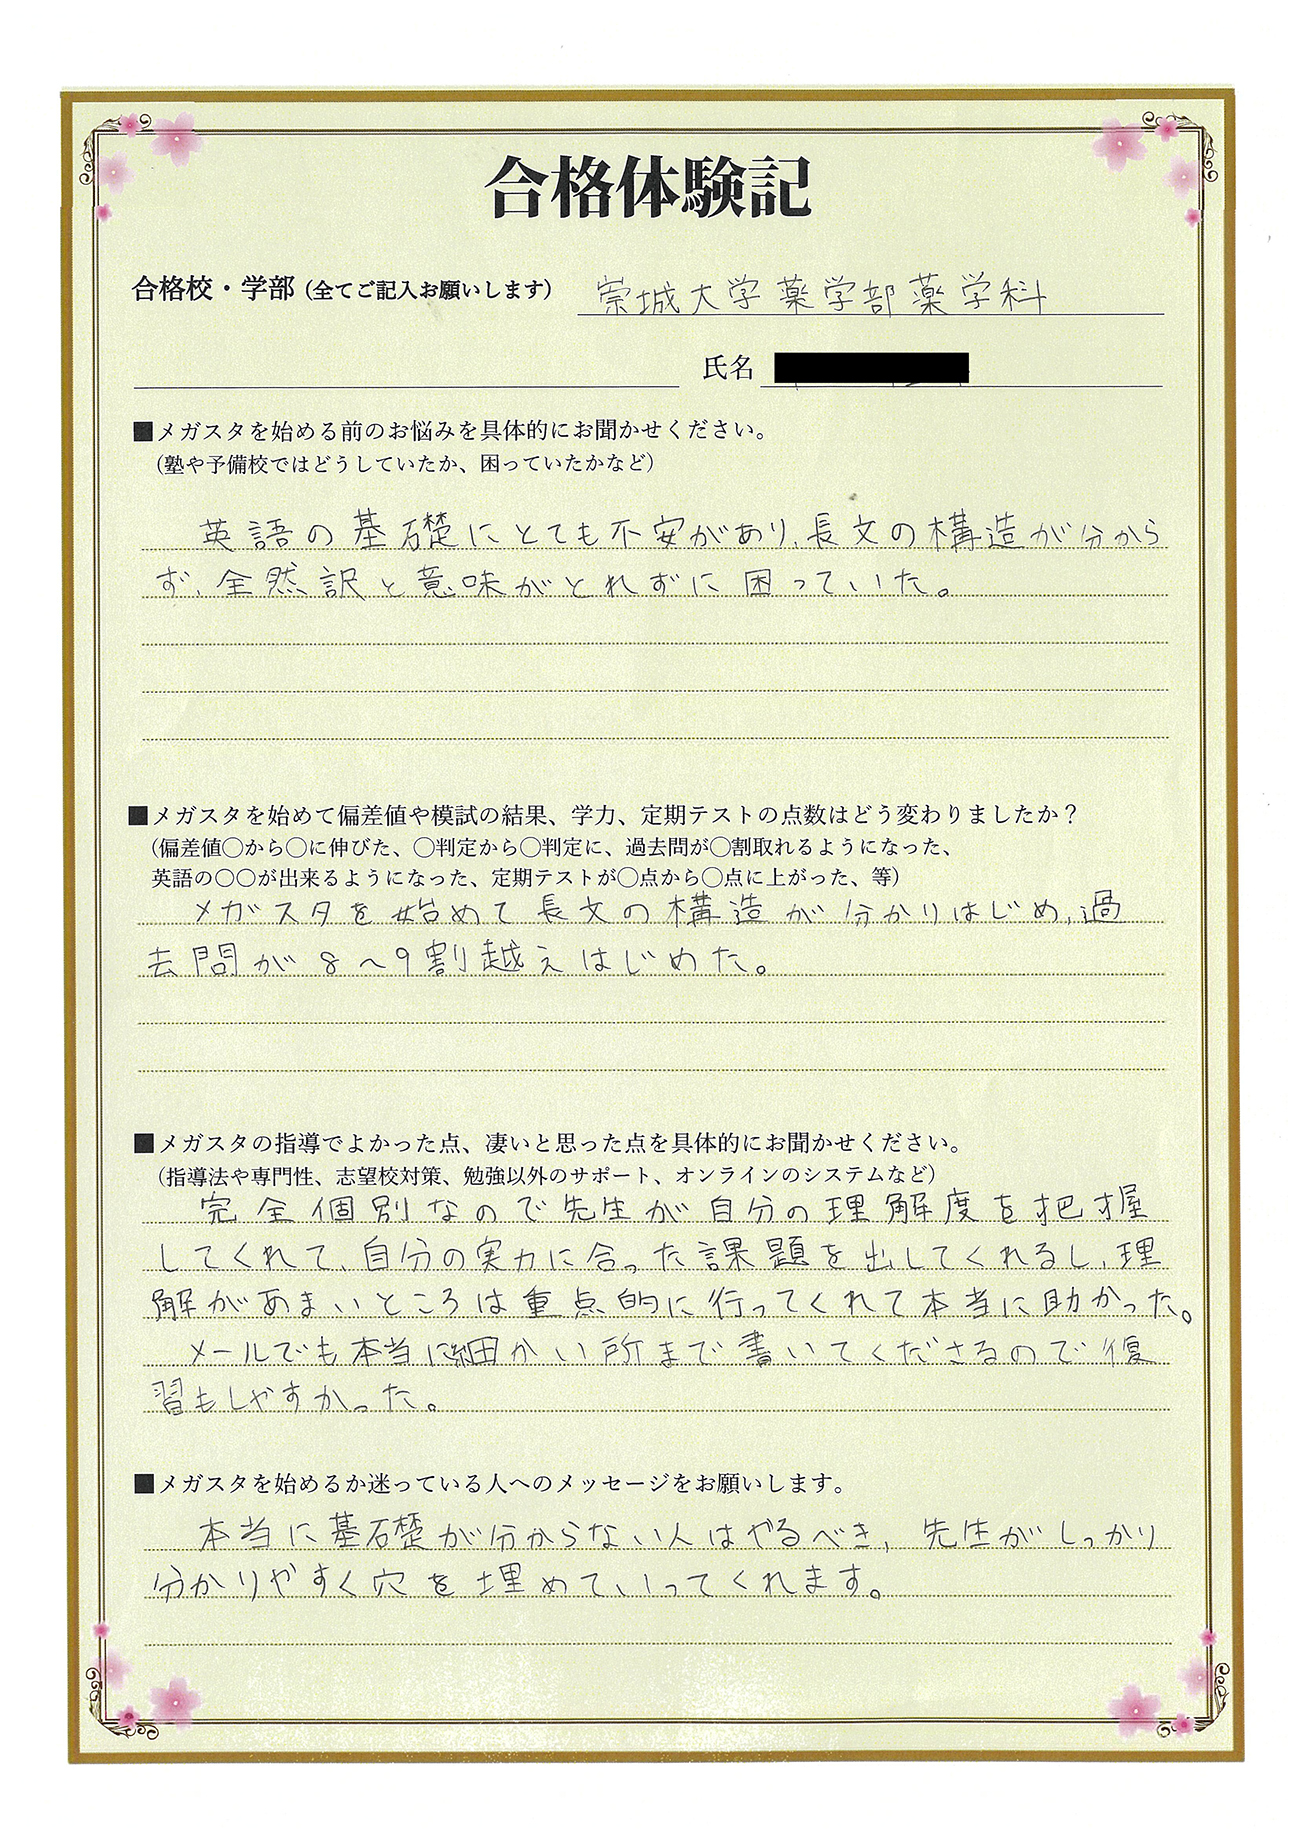 合格体験記
合格校・学部（全てご記入お願いします） 崇城大学薬学部薬学科
氏名
■メガスタを始める前のお悩みを具体的にお聞かせください。
（塾や予備校ではどうしていたか、困っていたかなど）
英語の基礎にとても不安があり、長文の構造が分から
ず、全然訳と意味がとれずに困っていた。
■メガスタを始めて偏差値や模試の結果、学力、定期テストの点数はどう変わりましたか？
（偏差値〇から〇に伸びた、〇判定から〇判定に、過去問が〇割取れるようになった、
英語の〇〇が出来るようになった、定期テストが〇点から〇点に上がった、等）
メガスタを始めて長文の構造が分かりはじめ、過
去問が8～9割越えはじめた。
■メガスタの指導でよかった点、凄いと思った点を具体的にお聞かせください。
（指導法や専門性、志望校対策、勉強以外のサポート、オンラインのシステムなど）
完全個別なので先生が自分の理解度を把握
してくれて、自分の実力に合った課題を出してくれるし、理
解があまいところは重点的に行ってくれて本当に助かった。
メールでも本当に細かい所まで書いてくださるので復
習もしやすかった。
■メガスタを始めるか迷っている人へのメッセージをお願いします。
本当に基礎が分からない人はやるべき、先生がしっかり
分かりやすく穴を埋めていってくれます。